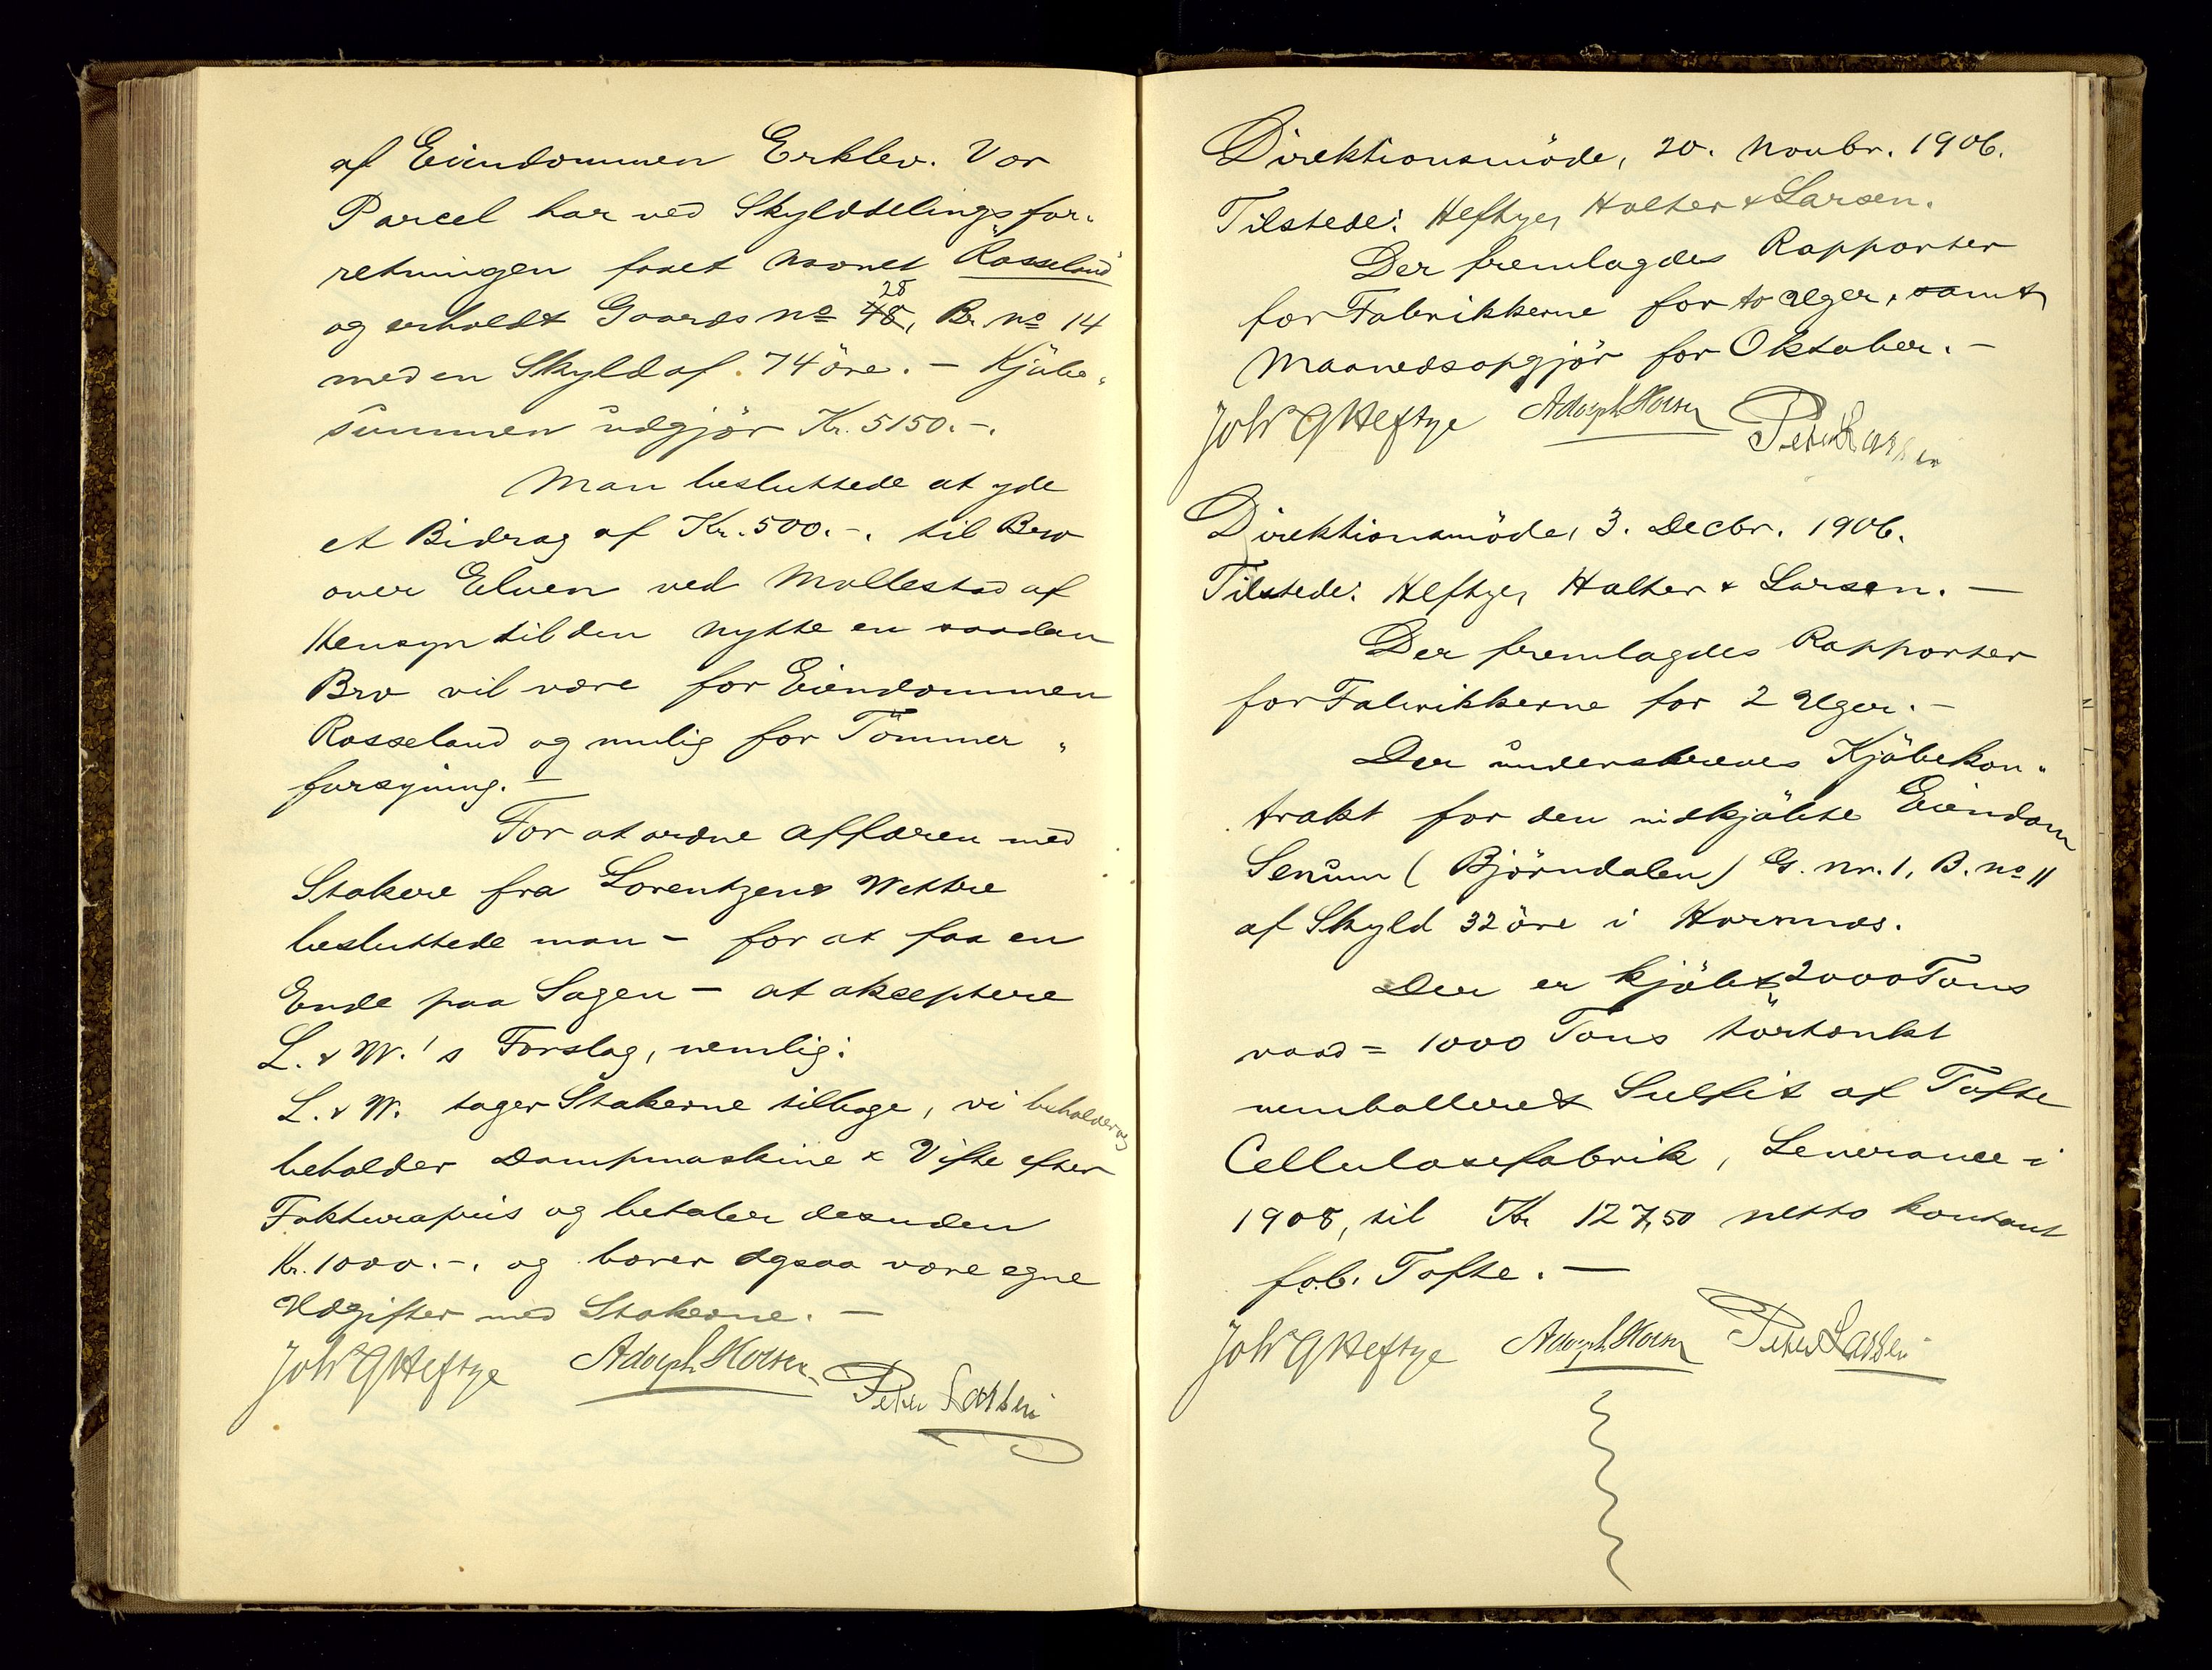 af Eiendommen Erklev. Vor
Parcel har ved Skylddelingsfor-
retningen faaet Navnet "Rosseland"
og erholdt Gaards No 48, 28 Br. No 14
med en Skyld af 74 öre. – Kjöbe-
summen udgjör Kr. 5150.-.
Man besluttede at yde
et Bidrag af Kr. 500.-. til Bro
over Elven ved Mollestad af
Hensyn til den Nytte en saadan
Bro vil være for Eiendommen
Rosseland og mulig for Tömmer-
forsyning. –
For at ordne Affæren med
Stokere fra Lorentzen & Wettre
besluttede man – for at faa en
Ende paa Sagen – at akceptere
L. & W.'s Forslag, nemlig:
L. & W. tager Stokerne tilbage, vi beholder og
beholder Dampmaskine & Vifte efter
Fakturapris og betaler desuden
Kr. 1000.-. og bærer ogsaa vore egne
Udgifter med Stokerne. –
Johs G Heftye Adolph Holter Peter Larsen
Direktionsmöde, 20. Novbr. 1906.
Tilstede: Heftye, Holter & Larsen.
Der fremlagdes Rapporter
for Fabrikkerne for to Uger, samt
Maanedsopgjör for Oktober. –
Johs G Heftye Adolph Holter Peter Larsen
Direktionsmöde, 3. Decbr. 1906.
Tilstede: Heftye, Holter & Larsen. –
Der fremlagdes Rapporter
for Fabrikkerne for 2 Uger. –
Der underskreves Kjöbekon-
trakt for den indkjöbte Eiendom
Senum (Björndalen) G. Nr. 1, B. No 11
af Skyld 32 öre i Hornnæs.
Der er kjöbt 2000 Tons
vaad = 1000 Tons törtænkt
uemballeret Sulfit af Tofte
Cellulosefabrik, Leverance i
1908, til Kr 127,50 netto kontant
fob. Tofte. –
Johs G Heftye Adolph Holter Peter Larsen